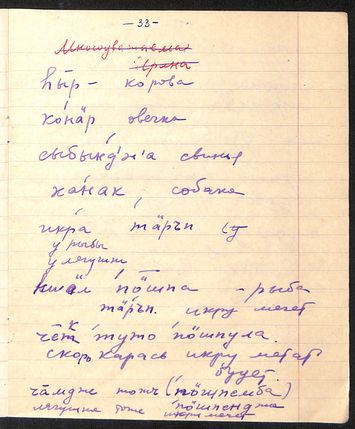 — 33 —
Многоуважаемая
Ирина
һы̄р – корова
ко́нӓр овечка
сыбы́нд'ж'а свинья
ка́нак собака
и́кра тӓръп
у рыбы
у лягушки
по̄шпа – рыба
тӓръп. икру мечет
туто по̄шпула.
скоро карась икру метать
будет.
ча̄мдже тоже (по̄шпемба)
лягушка тоже по̄шпенджа
икру мечет